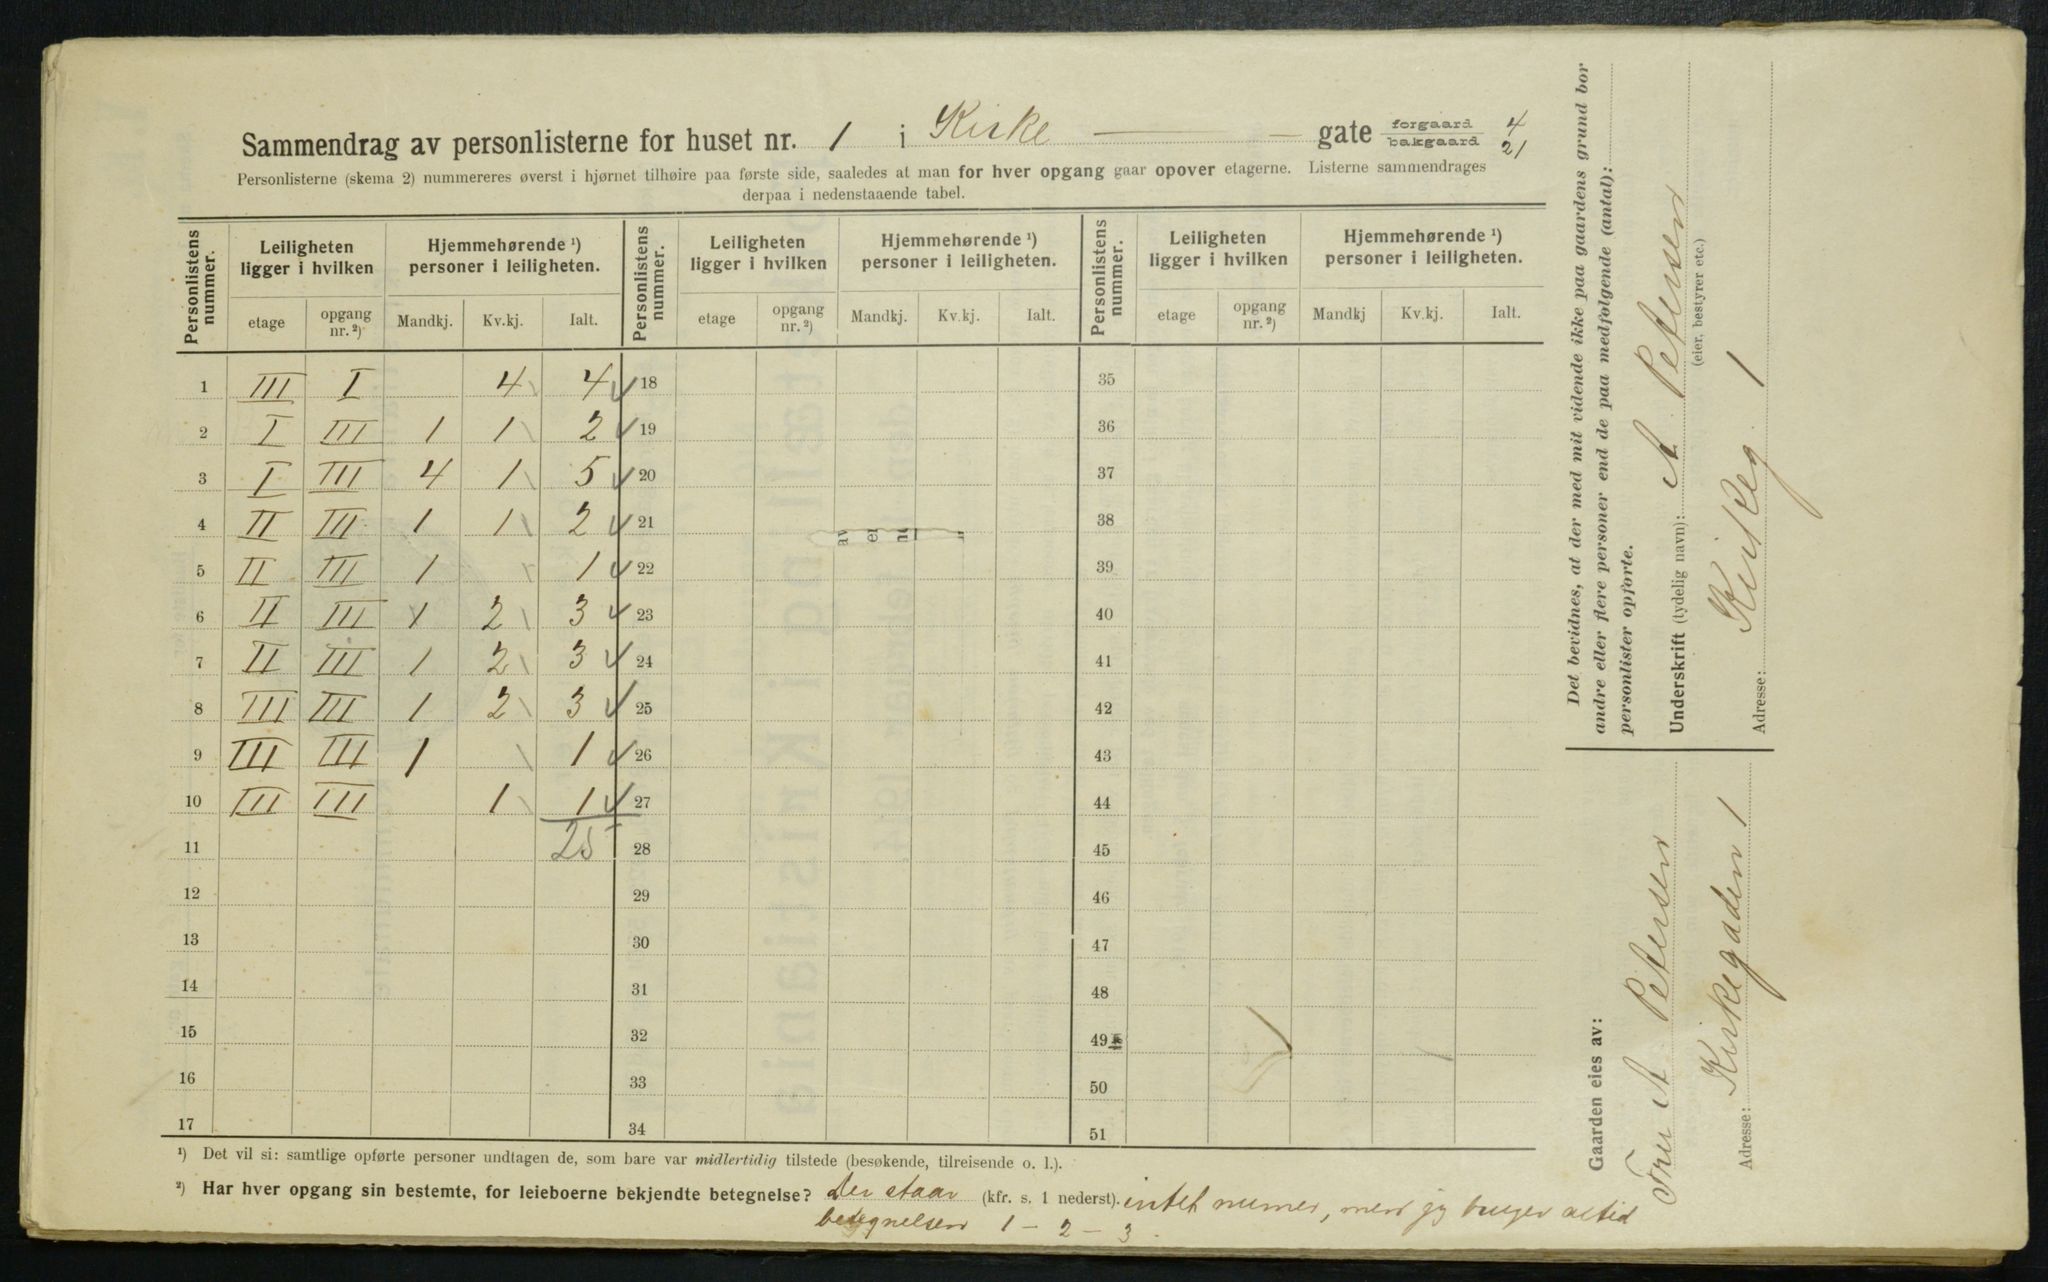 Sammendrag av personlisterne for huset nr. 1 i Kirke — — gate forgaard bakgaard 4 21
Personlisterne (skema 2) nummereres øverst i hjørnet tilhøire paa første side, saaledes at man for hver opgang gaar opover etagerne. Listerne sammendrages
derpaa i nedenstaaende tabel.
Personlistens nummer. Leiligheten ligger i hvilken Hjemmehørende ¹) personer i leiligheten. Personlistens nummer. Leiligheten ligger i hvilken Hjemmehørende ¹) personer i leiligheten. Personlistens nummer. Leiligheten ligger i hvilken Hjemmehørende ¹) personer i leiligheten.
etage opgang nr. ²) Mandkj. Kv.kj. Ialt. etage opgang nr. ²) Mandkj. Kv.kj. Ialt. etage opgang nr. ²) Mandkj Kv.kj. Ialt.
1 III I 4 4 18 35
2 I III 1 1 2 19 36
3 I III 4 1 5 20 37
4 II III 1 1 2 21 38
5 II III 1 1 22 39
6 II III 1 2 3 23 40
7 II III 1 2 3 24 41
8 III III 1 2 3 25 42
9 III III 1 1 26 43
10 III III 1 1 27 44
11 25 28 45
12 29 46
13 30 47
14 31 48
15 32 49
16 33 50
17 34 51
¹) Det vil si: samtlige opførte personer undtagen de, som bare var midlertidig tilstede (besøkende, tilreisende o. l.).
²) Har hver opgang sin bestemte, for leieboerne bekjendte betegnelse? Der staar (kfr. s. 1 nederst). intet numer, men jg bruger altid
betegnelsen 1 - 2 - 3.
Det bevidnes, at der med mit vidende ikke paa gaardens grund bor
andre eller flere personer end de paa medfølgende (antal):
personlister opførte.
Underskrift (tydelig navn): A Petersen
(eier, bestyrer etc.)
Adresse: Kirkeg 1
Gaarden eies av:
Fru A Petersen
Adresse: Kirkegaden 1